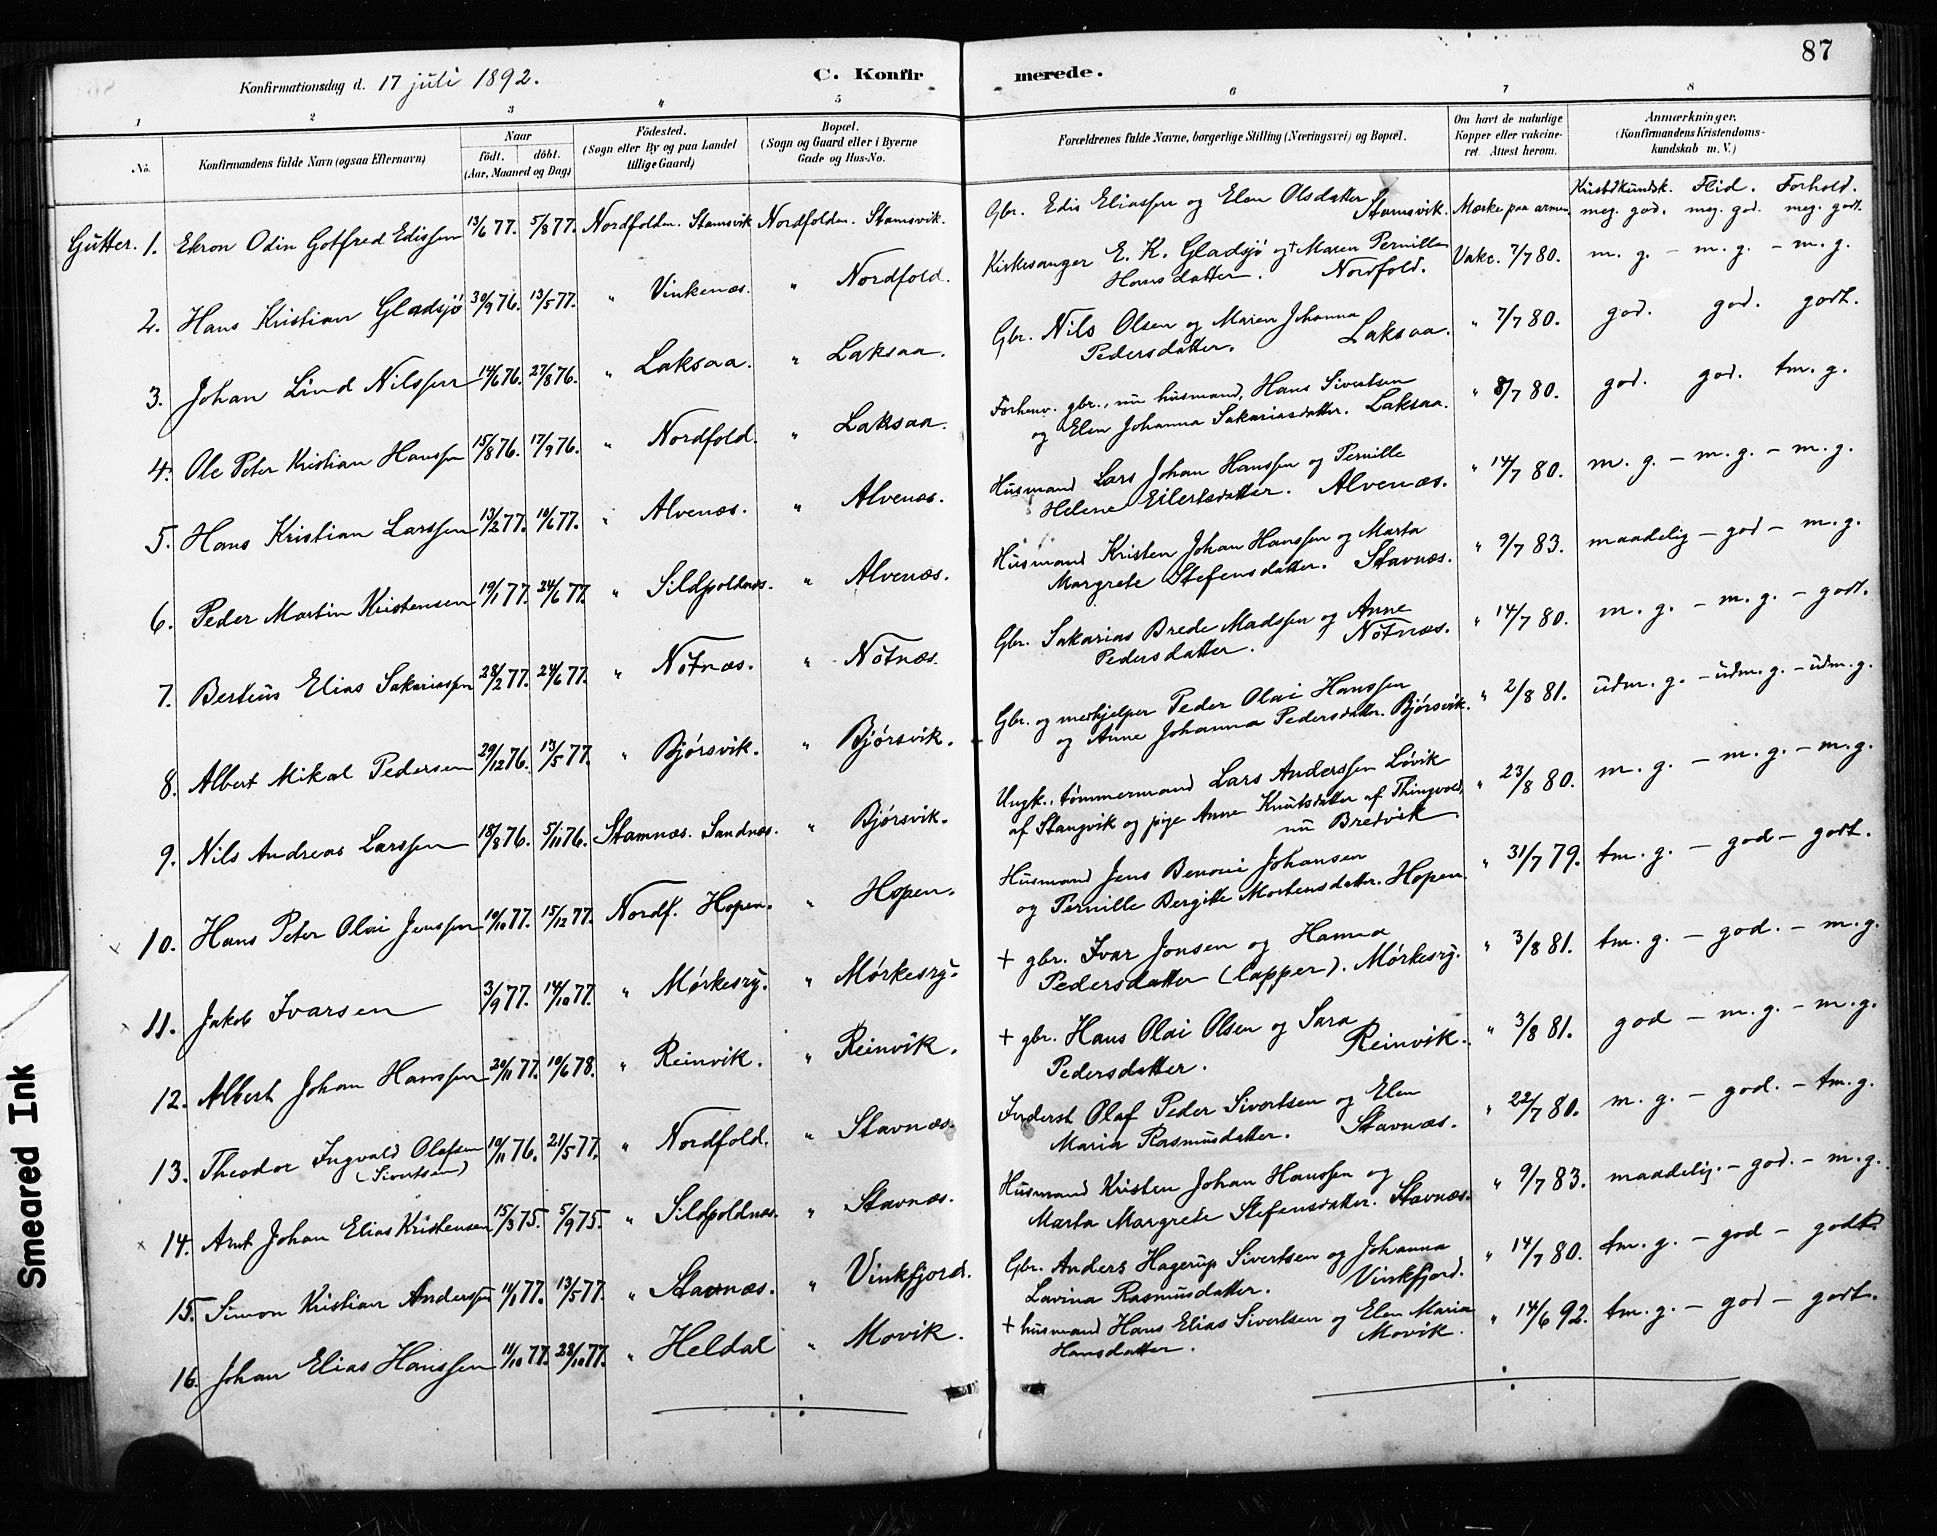 87
Konfirmationsdag d. 17 juli 1892.
C. Konfirmerede.
1 2 3 4 5 6 7 8
No.
Konfirmandens fulde Navn (ogsaa Efternavn)
Naar
födt. döbt.
(Aar, Maaned og Dag)
Födested.
(Sogn eller By og paa Landet
tillige Gaard)
Bopæl.
(Sogn og Gaard eller i Byerne
Gade og Hus-No.
Forældrenes fulde Navne, borgerlige Stilling (Næringsvei) og Bopæl.
Om havt de naturlige
Kopper eller vakcine-
ret. Attest herom.
Anmærkninger.
(Konfirmandens Kristendoms-
kundskab m. V.)
Kristdkundsk. Flid. Forhold.
Gutter. 1. Ekron Odin Gotfred Edissen 13/6 77. 5/8 77. Nordfolden. Stamsvik Nordfolden. Stamsvik. Gbr. Edis Eliassen og Elen Olsdatter Stamsvik. Mærke paa armen meg. god. meg. god. meg. godt.
2. Hans Kristian Gladsjö 30/9 76. 13/5 77. " Vinkenæs. " Nordfold. Kirkesanger E. K. Gladsjö og + Maren Pernille
Hansdatter. Nordfold. Vakc. 7/7 80. m. g. – m. g. – m. g.
3. Johan Lind Nilssen 14/6 76. 27/8 76. " Laksaa. " Laksaa. Gbr. Nils Olsen og Maren Johanna
Pedersdatter. Laksaa. " 7/7 80. god. god. godt.
4. Ole Peter Kristian Hanssen 15/8 76. 17/9 76. " Nordfold. " Laksaa. Forhenv. gbr., nu husmand, Hans Sivertsen
og Elen Johanna Sakariasdatter. Laksaa. " 8/7 80. god. god. tm. g.
5. Hans Kristian Larssen 13/2 77. 10/6 77. " Alvenæs. " Alvenæs. Husmand Lars Johan Hanssen og Pernille
Helene Eilertsdatter. Alvenæs. " 14/7 80. m. g. – m. g. – m. g.
6. Peder Martin Kristensen 19/1 77. 24/6 77. " Sildpoldnæs. " Alvenæs. Husmand Kristen Johan Hanssen og Marta
Margrete Stefensdatter. Stavnæs. " 9/7 83. maadelig – god – m. g.
7. Berteus Elias Sakariassen 28/2 77. 24/6 77. " Nötnæs. " Nötnæs. Gbr. Sakarias Brede Madssen og Anne
Pedersdatter. Nötnæs. " 14/7 80. m. g. – m. g. – godt.
8. Albert Mikal Pedersen 29/12 76. 13/5 77. " Bjórsvik. " Bjórsvik. Gbr. og medhjelper Peder Olai Hanssen
og Anne Johanna Pedersdatter. Bjørsvik. " 2/8 81. udm. g. – udm. g. – udm. g.
9. Nils Andreas Larssen 18/8 76. 5/11 76. Stamnæs. Sandnæs. " Bjórsvik. Ungk., tømmermand Lars Anderssen Løvik
af Stangvik og pige Anne Knutsdatter af Thingvold,
nu Bredvik " 23/8 80. m. g. – m. g. – m. g.
10. Hans Peter Olai Jenssen 10/10 77. 15/12 77. Nordf. Hopen. " Hopen. Husmand Jens Benoni Johansen
og Pernille Bergitte Mortensdatter. Hopen. " 31/7 79. tm. g. – god – godt.
11. Jakob Ivarsen 3/9 77. 14/10 77. " Mørkesry. " Mørkesry. + gbr. Ivar Jonsen og Hanna
Pedersdatter (lapper). Mørkesry. " 3/8 81. tm. g. – god. – m. g.
12. Albert Johan Hanssen 20/11 77. 10/6 78. " Reinvik. " Reinvik. + gbr. Hans Olai Olsen og Sara
Pedersdatter. Reinvik. " 3/8 81. god – m. g. – m. g.
13. Theodor Ingvald Olafsen
(Sivertsen) 10/11 76. 21/5 77. " Nordfold. " Stavnæs. Inderst Olaf Peder Sivertsen og Elen
Maria Rasmusdatter. Stavnæs. " 22/7 80. m. g. – god. – tm. g.
14. Arnt Johan Elias Kristensen 15/3 75. 5/9 75. " Sildpoldnæs. " Stavnæs. Husmand Kristen Johan Hanssen og
Marta Margrete Stefensdatter. Stavnæs. " 9/7 83. maadelig. – god. – m. g.
15. Simon Kristian Anderssen 11/1 77. 13/5 77. " Stavnæs. " Vinkfjord. Gbr. Anders Hagerup Sivertsen og Johanna
Lavina Rasmusdatter. Vinkfjord. " 14/7 80. tm. g. – god – godt.
16. Johan Elias Hanssen 11/10 77. 28/10 77. " Heldal " Movik. + husmand Hans Elias Sivertsen og Elen Maria
Hansdatter. Movik. " 14/6 92. tm. g. – god – godt.
Smeared Ink